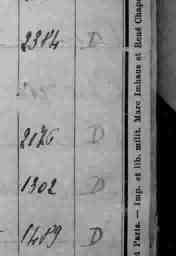 2384 D
2176 D
1302 D
1489 D
4 Paris. — Imp. et lib. milit. Marc Imhaus et René Chape